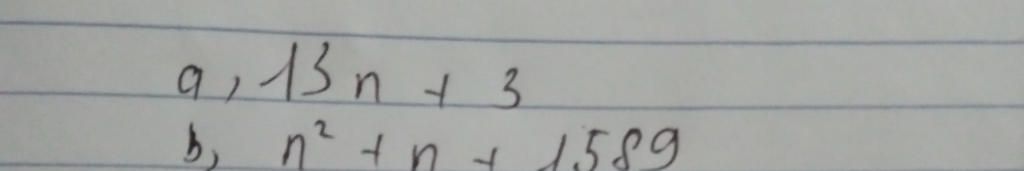 a, 13n + 3
b, n² + n + 1589